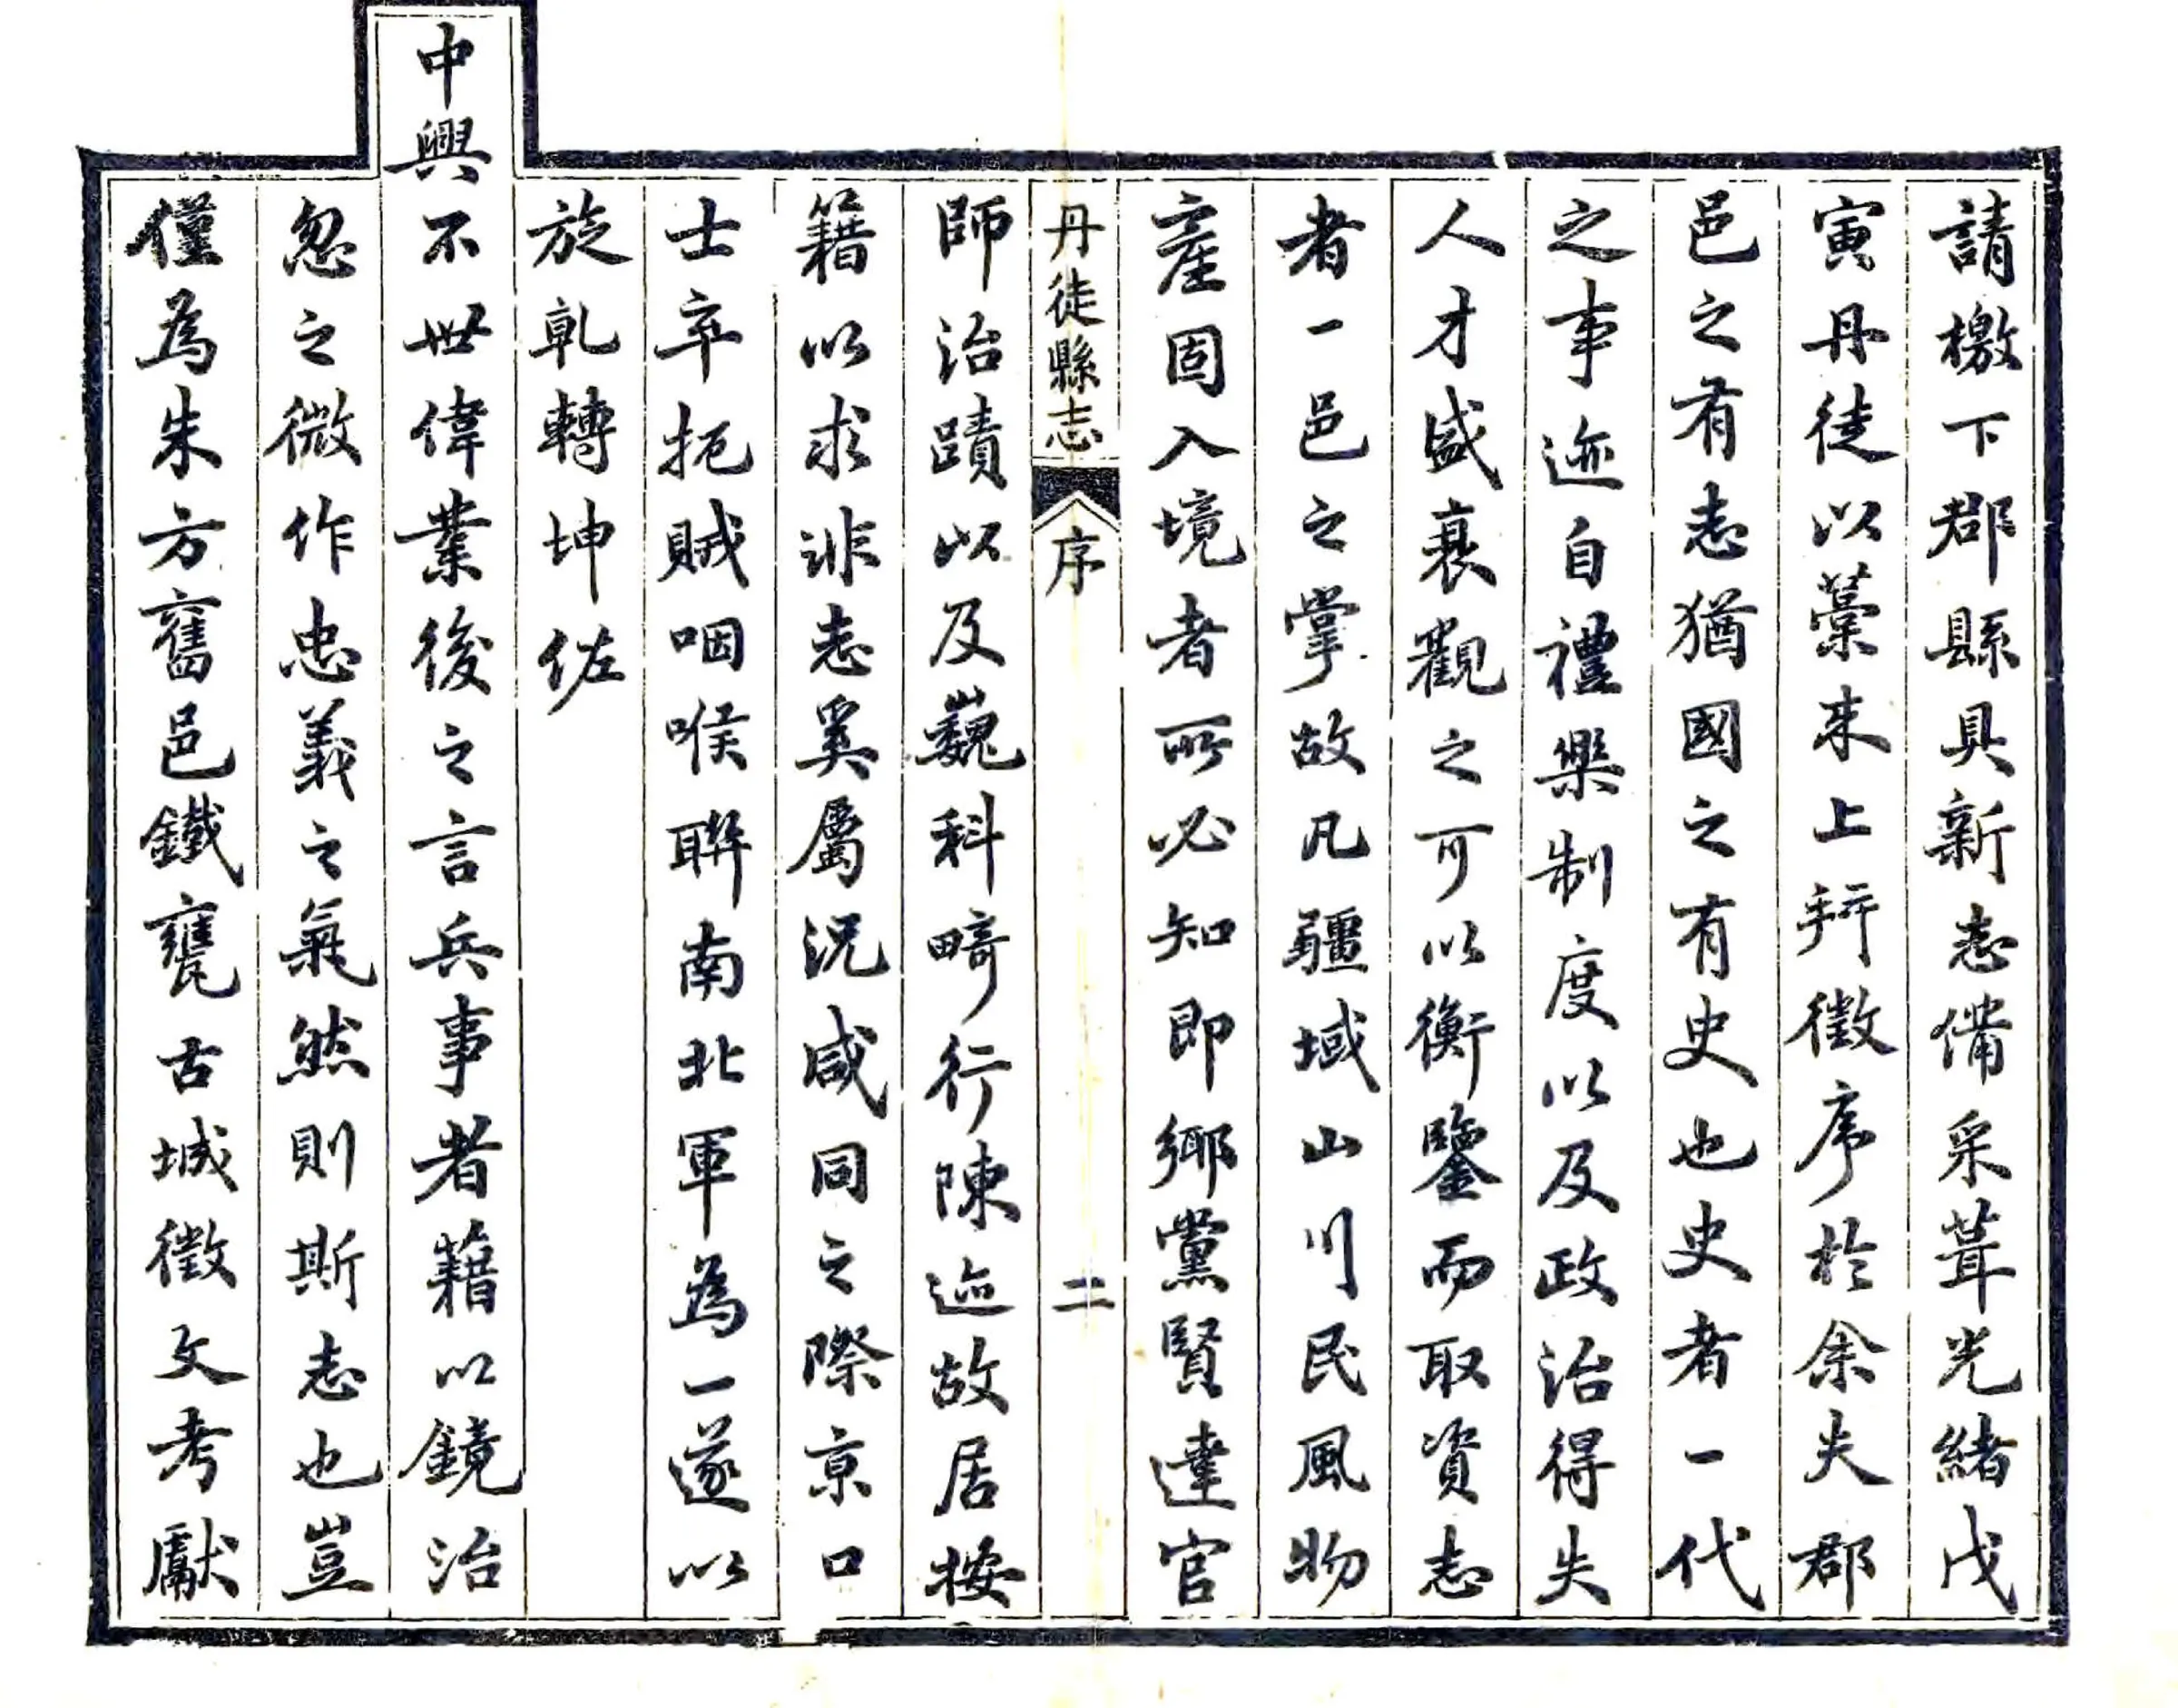 請檄下郡縣具新志備采葺光緒戊
寅丹徒以藁来上并徵序於余夫郡
邑之有志猶國之有史也史者一代
之事迹自禮樂制度以及政治得失
人才盛衰觀之可以衡鑒而取資志
者一邑之掌故凡疆域山川民風物
產固入境者所必知即鄉黨賢達官
丹徒縣志 序 二
師治蹟以及巍科畸行陳迹故居按
籍以求讹志奚屬況咸同之際京口
士卒扼賊咽喉聯南北軍為一遂以
旋乹轉坤佐
中興不世偉業後之言兵事者籍以鏡治
忽之微作忠義之氣然則斯志也豈
僅為朱方舊邑鐵甕古城徵文考獻